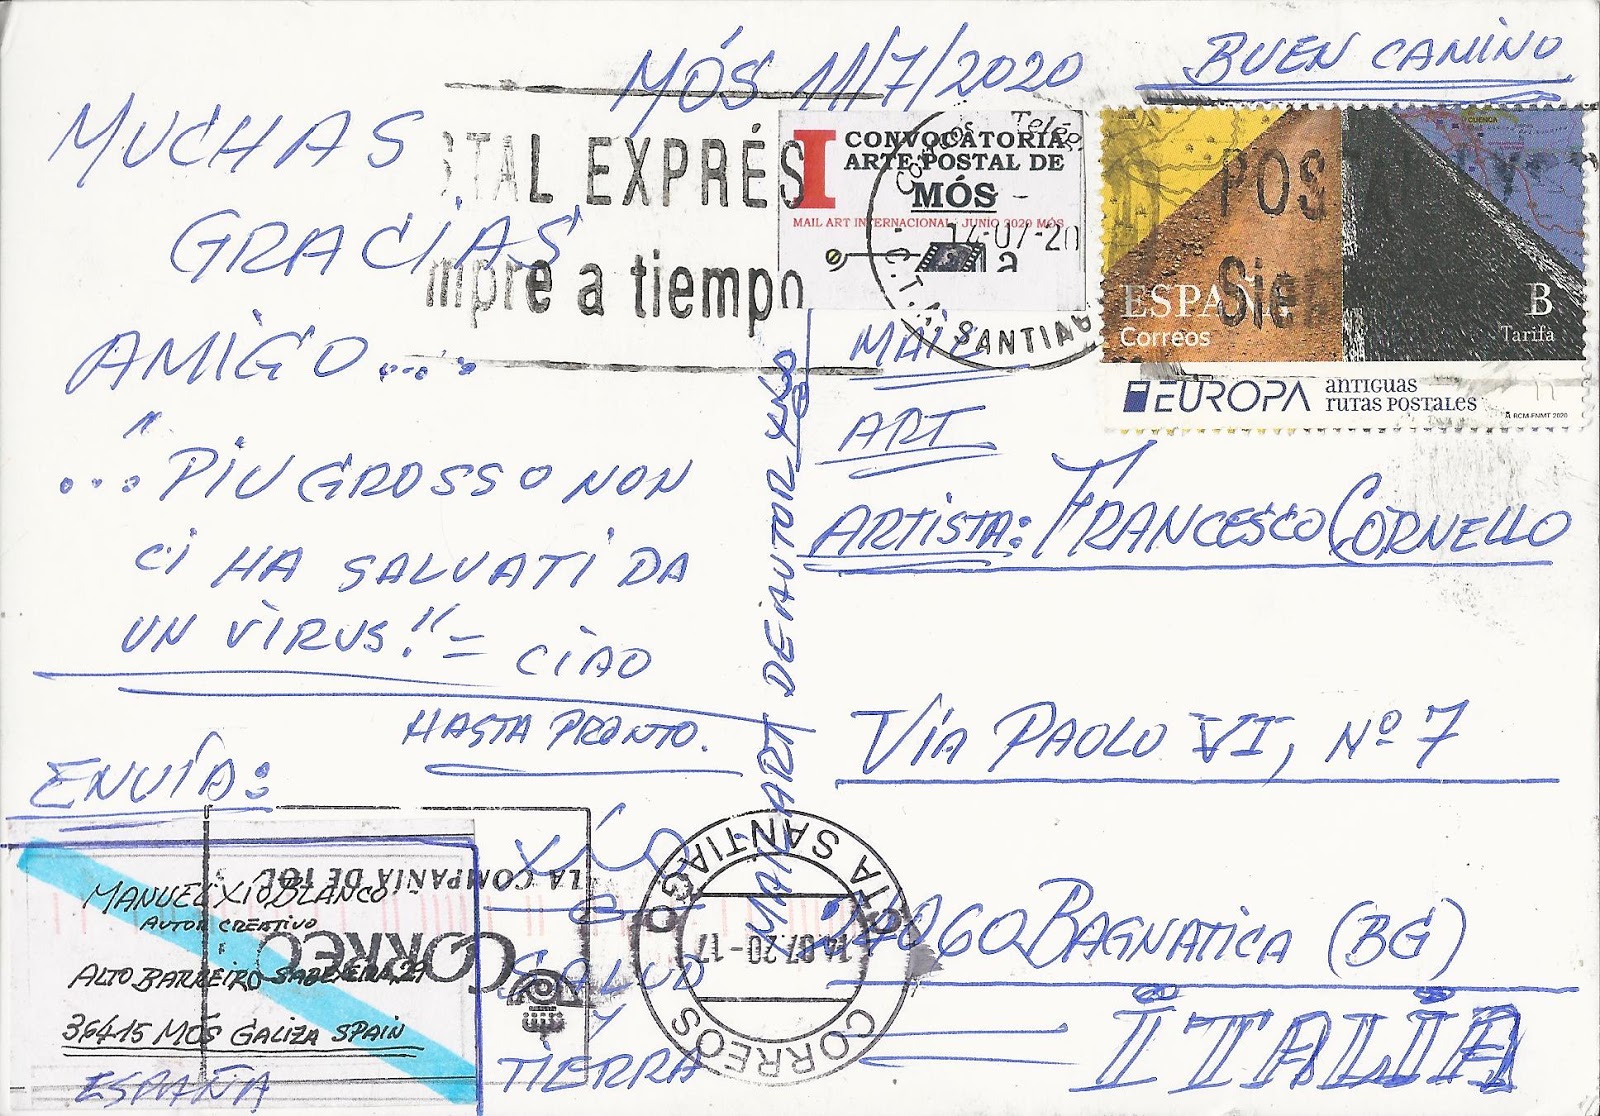 MÓS 11/7/2020
BUEN CAMINO
MUCHAS
GRACIAS
AMIGO....
..."PIU GROSSO NON
CI HA SALVATI DA
UN VIRUS!!" = CIAO
HASTA PRONTO.
STAL EXPRÉS
mpre a tiempo
I CONVOCATORIA
ARTE POSTAL DE
MÓS
MAIL ART INTERNACIONAL · JUNIO 2020 MÓS
a
14-07-20
SANTIA
POS
Sie
ESPAÑA
Correos
B
Tarifa
EUROPA ANTIGUAS
RUTAS POSTALES
RCM-FNMT 2020
MAIL
ART
ARTISTA: FRANCESCO CORNELLO
VÍA PAOLO VI, Nº 7
24060 BAGNATICA (BG)
ITALIA
MAIL ART DE AUTOR XIO
ENVÍA:
MANUEL XIO BLANCO
AUTOR CREATIVO
ALTO BARREIRO SABREIRA 29
36415 MÓS GALIZA SPAIN
ESPAÑA
XIO
SALUD
Y
TIERRA
LA COMPAÑÍA DE TOD
CORREO
CTA SANTIAGO
14.07.20-17
CORREOS